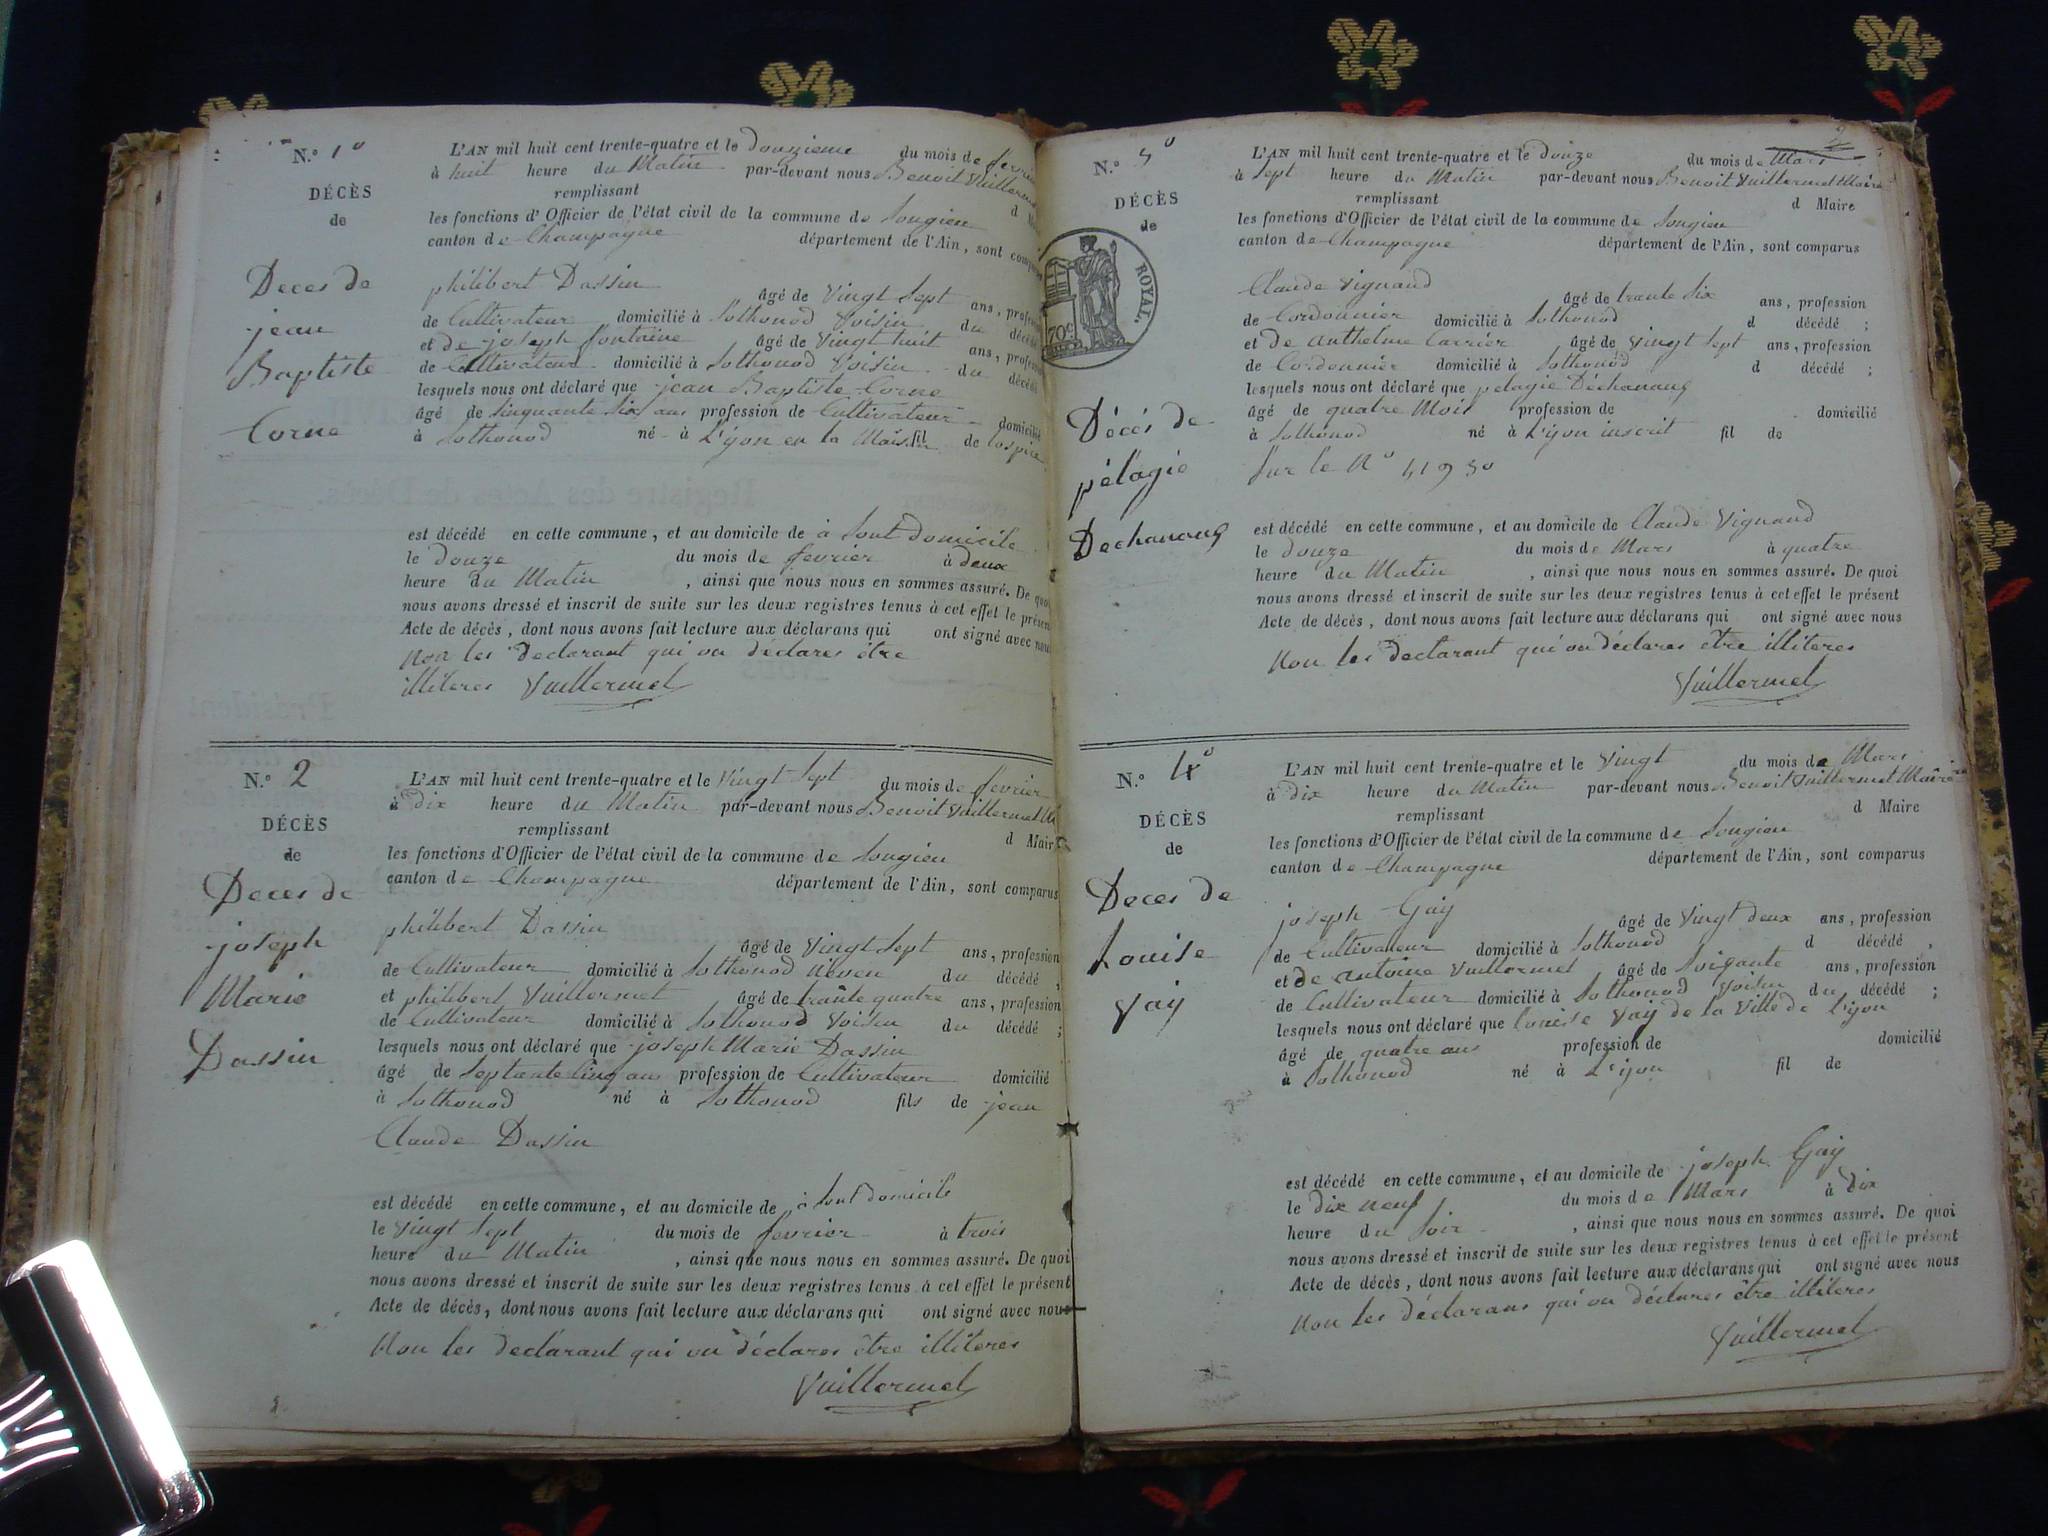 N.º 1º
DÉCÈS
de
Deces de
jean
Baptiste
Corne
L'AN mil huit cent trente-quatre et le Douzieme du mois de fevrier
à huit heure du Matin par-devant nous Benoit Vuillermet
remplissant d Maire
les fonctions d'Officier de l'état civil de la commune de Songieu
canton de Champagne département de l'Ain, sont comparus
philibert Dassin
âgé de vingt sept ans, profession
de Cultivateur domicilié à Sothonod Voisin du décédé
et de joseph fontaine âgé de vingt huit ans, profession
de Cultivateur domicilié à Sothonod Voisin du décédé
lesquels nous ont déclaré que jean Baptiste Corne
âgé de Sinquante Six ans profession de Cultivateur domicilié
à Sothonod né à L'yon en la Maison fil de Lospice
est décédé en cette commune, et au domicile de à Sont domicile
le Douze du mois de fevrier à deux
heure du Matin, ainsi que nous nous en sommes assuré. De quoi
nous avons dressé et inscrit de suite sur les deux registres tenus à cet effet le présent
Acte de décès, dont nous avons fait lecture aux déclarans qui ont signé avec nous
Non les Declarant qui on déclares être
illiteres Vuillermet
N.º 2
DÉCÈS
de
Deces de
joseph
Marie
Dassin
L'AN mil huit cent trente-quatre et le Vingt Sept du mois de fevrier
à Dix heure du Matin par-devant nous Benoit Vuillermet M
remplissant d Maire
les fonctions d'Officier de l'état civil de la commune de Songieu
canton de Champagne département de l'Ain, sont comparus
philibert Dassin
âgé de Vingt Sept ans, profession
de Cultivateur domicilié à Sothonod Neveu du décédé,
et philibert Vuillermet âgé de trante quatre ans, profession
de Cultivateur domicilié à Sothonod Voisin du décédé;
lesquels nous ont déclaré que joseph Marie Dassin
âgé de Septante Cinq ans profession de Cultivateur domicilié
à Sothonod né à Sothonod fils de jean
Claude Dassin
est décédé en cette commune, et au domicile de à Sont domicile
le Vingt Sept du mois de fevrier à trois
heure du Matin, ainsi que nous nous en sommes assuré. De quoi
nous avons dressé et inscrit de suite sur les deux registres tenus à cet effet le présent
Acte de décès, dont nous avons fait lecture aux déclarans qui ont signé avec nous
Non les Declarant qui on déclares être illiteres
Vuillermet
2
N.º 3º
DÉCÈS
de
ROYAL.
70 c
Décés de
pélagie
Dechanang
L'AN mil huit cent trente-quatre et le Douze du mois de Mars
à Sept heure du Matin par-devant nous Benoit Vuillermet Maire
remplissant d Maire
les fonctions d'Officier de l'état civil de la commune de Songieu
canton de Champagne département de l'Ain, sont comparus
Claude Vignand
âgé de trante Six ans, profession
de Cordonnier domicilié à Sothonod d décédé;
et de anthelme Carrier âgé de Vingt Sept ans, profession
de Cordonnier domicilié à Sothonod d décédé;
lesquels nous ont déclaré que pelagie Déchanang
âgé de quatre Mois profession de domicilié
à Sothonod né à L'yon inscrit fil de
Sur le Nº
est décédé en cette commune, et au domicile de Claude Vignand
le Douze du mois de Mars à quatre
heure du Matin, ainsi que nous nous en sommes assuré. De quoi
nous avons dressé et inscrit de suite sur les deux registres tenus à cet effet le présent
Acte de décès, dont nous avons fait lecture aux déclarans qui ont signé avec nous
Non les Declarant qui on déclares être illiteres
Vuillermet
N.º 4º
DÉCÈS
de
Deces de
Louise
Vay
L'AN mil huit cent trente-quatre et le Vingt du mois de Mars
à Dix heure du Matin par-devant nous Benoit Vuillermet Maire
remplissant d Maire
les fonctions d'Officier de l'état civil de la commune de Songieu
canton de Champagne département de l'Ain, sont comparus
joseph Gay
âgé de Vingt deux ans, profession
de Cultivateur domicilié à Sothonod d décédé,
et de antoine Vuillermet âgé de Soigante ans, profession
de Cultivateur domicilié à Sothonod Voisin du décédé;
lesquels nous ont déclaré que Louise Vay de la Ville de L'yon
âgé de quatre ans profession de domicilié
à Sothonod né à L'yon fil de
est décédé en cette commune, et au domicile de joseph Gay
le Dix neuf du mois de Mars à Dix
heure du Soir, ainsi que nous nous en sommes assuré. De quoi
nous avons dressé et inscrit de suite sur les deux registres tenus à cet effet le présent
Acte de décès, dont nous avons fait lecture aux déclarans qui ont signé avec nous
Non les déclarans qui on déclares être illiteres
Vuillermet